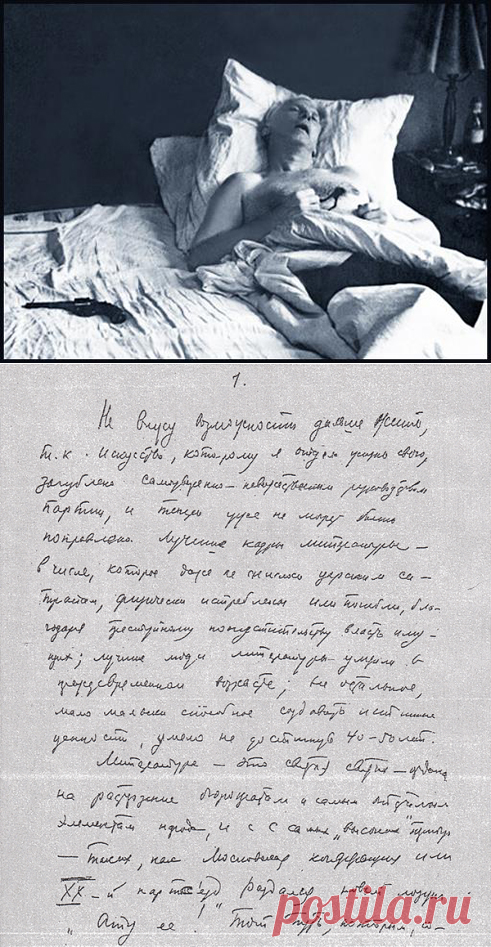 1.
Не вижу возможности дальше жить,
т.к. искусство, которому я отдал жизнь свою,
загублено самоуверенно-невежественным руководством
партии, и теперь уже не может быть
поправлено. Лучшие кадры литературы —
в числе, которое даже не снилось царским са-
трапам, физически истреблены или погибли, бла-
годаря преступному попустительству власть иму-
щих; лучшие люди литературы умерли в
преждевременном возрасте; все остальное,
мало мальски способное создавать истинные
ценности, умерло не достигнув 40-50 лет.
Литература — это святая святых — отдана
на растерзание бюрократам и самым отсталым
элементам народа, и с самых "высоких" трибун
— таких, как Московская конференция или
XX-й партсъезд раздался новый лозунг
"Ату ее! Тот путь, которым, со-
postila.ru